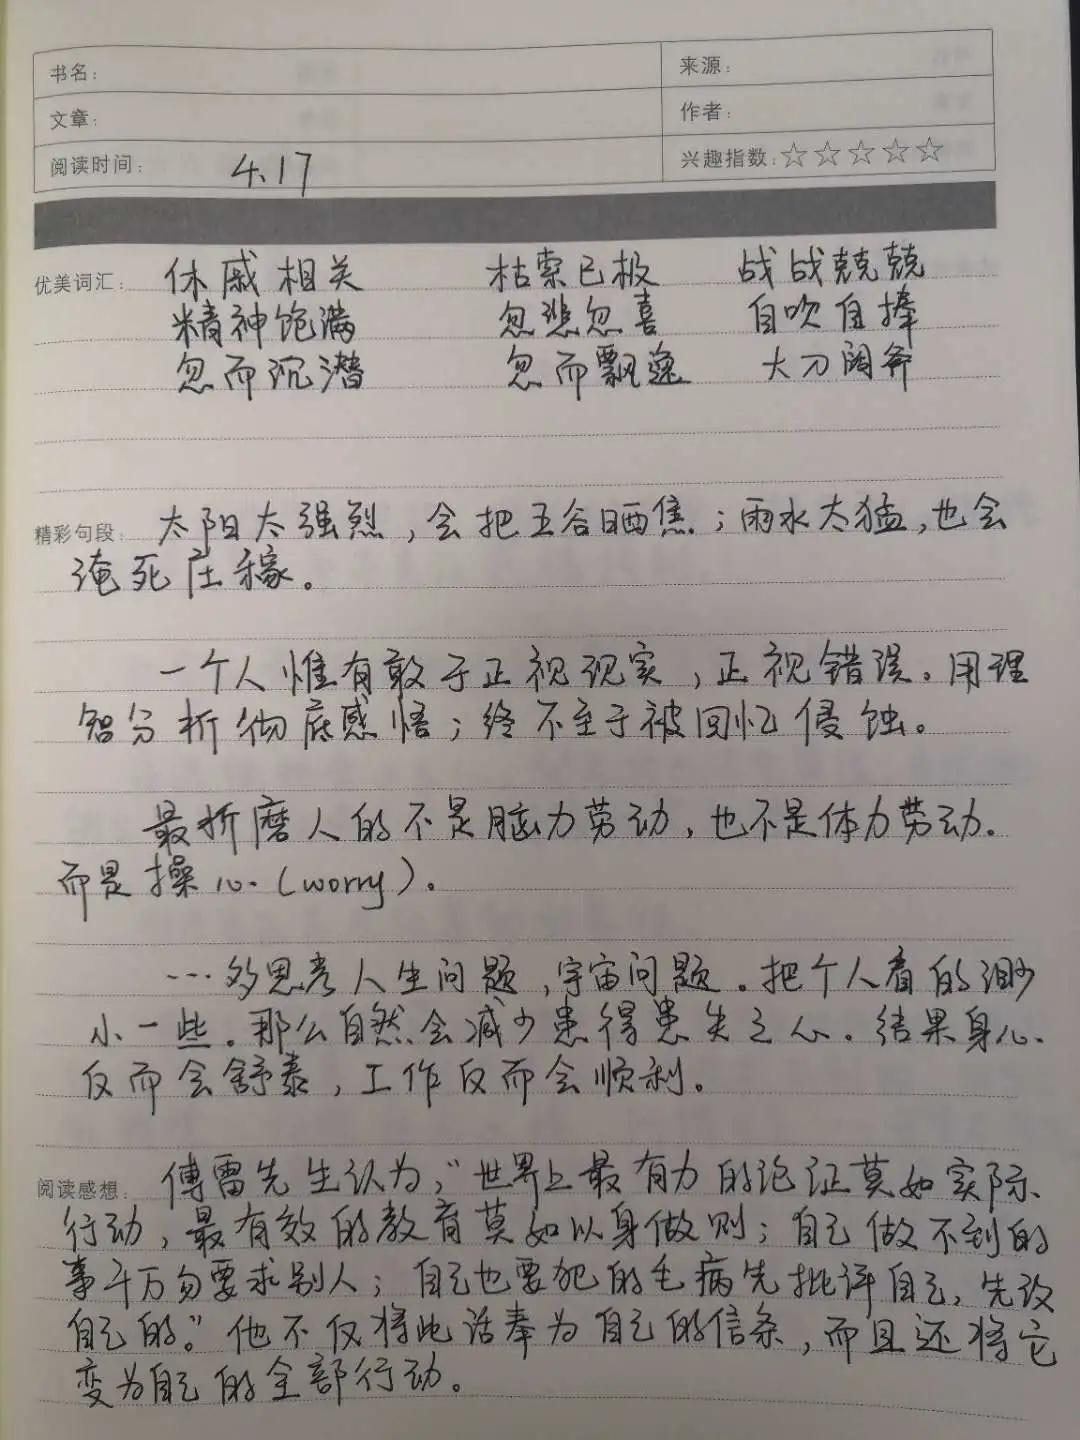 书名： 来源：
文章： 作者：
阅读时间： 4.17 兴趣指数：☆☆☆☆☆
优美词汇： 休戚相关 枯索已极 战战兢兢
精神饱满 忽悲忽喜 自吹自捧
忽而沉潜 忽而飘逸 大刀阔斧
精彩句段： 太阳太强烈，会把五谷晒焦；雨水太猛，也会
淹死庄稼。
一个人惟有敢于正视现实，正视错误。用理
智分析彻底感悟；终不至于被回忆侵蚀。
最折磨人的不是脑力劳动，也不是体力劳动。
而是操心.（worry）。
…多思考人生问题，宇宙问题。把个人看的渺
小一些。那么自然会减少患得患失之心。结果身心.
反而会舒泰，工作反而会顺利。
阅读感想： 傅雷先生认为，“世界上最有力的论证莫如实际
行动，最有效的教育莫如以身做则；自己做不到的
事千万勿要求别人；自己也要犯的毛病先批评自己，先改
自己的。”他不仅将此话奉为自己的信条，而且还将它
变为自己的全部行动。